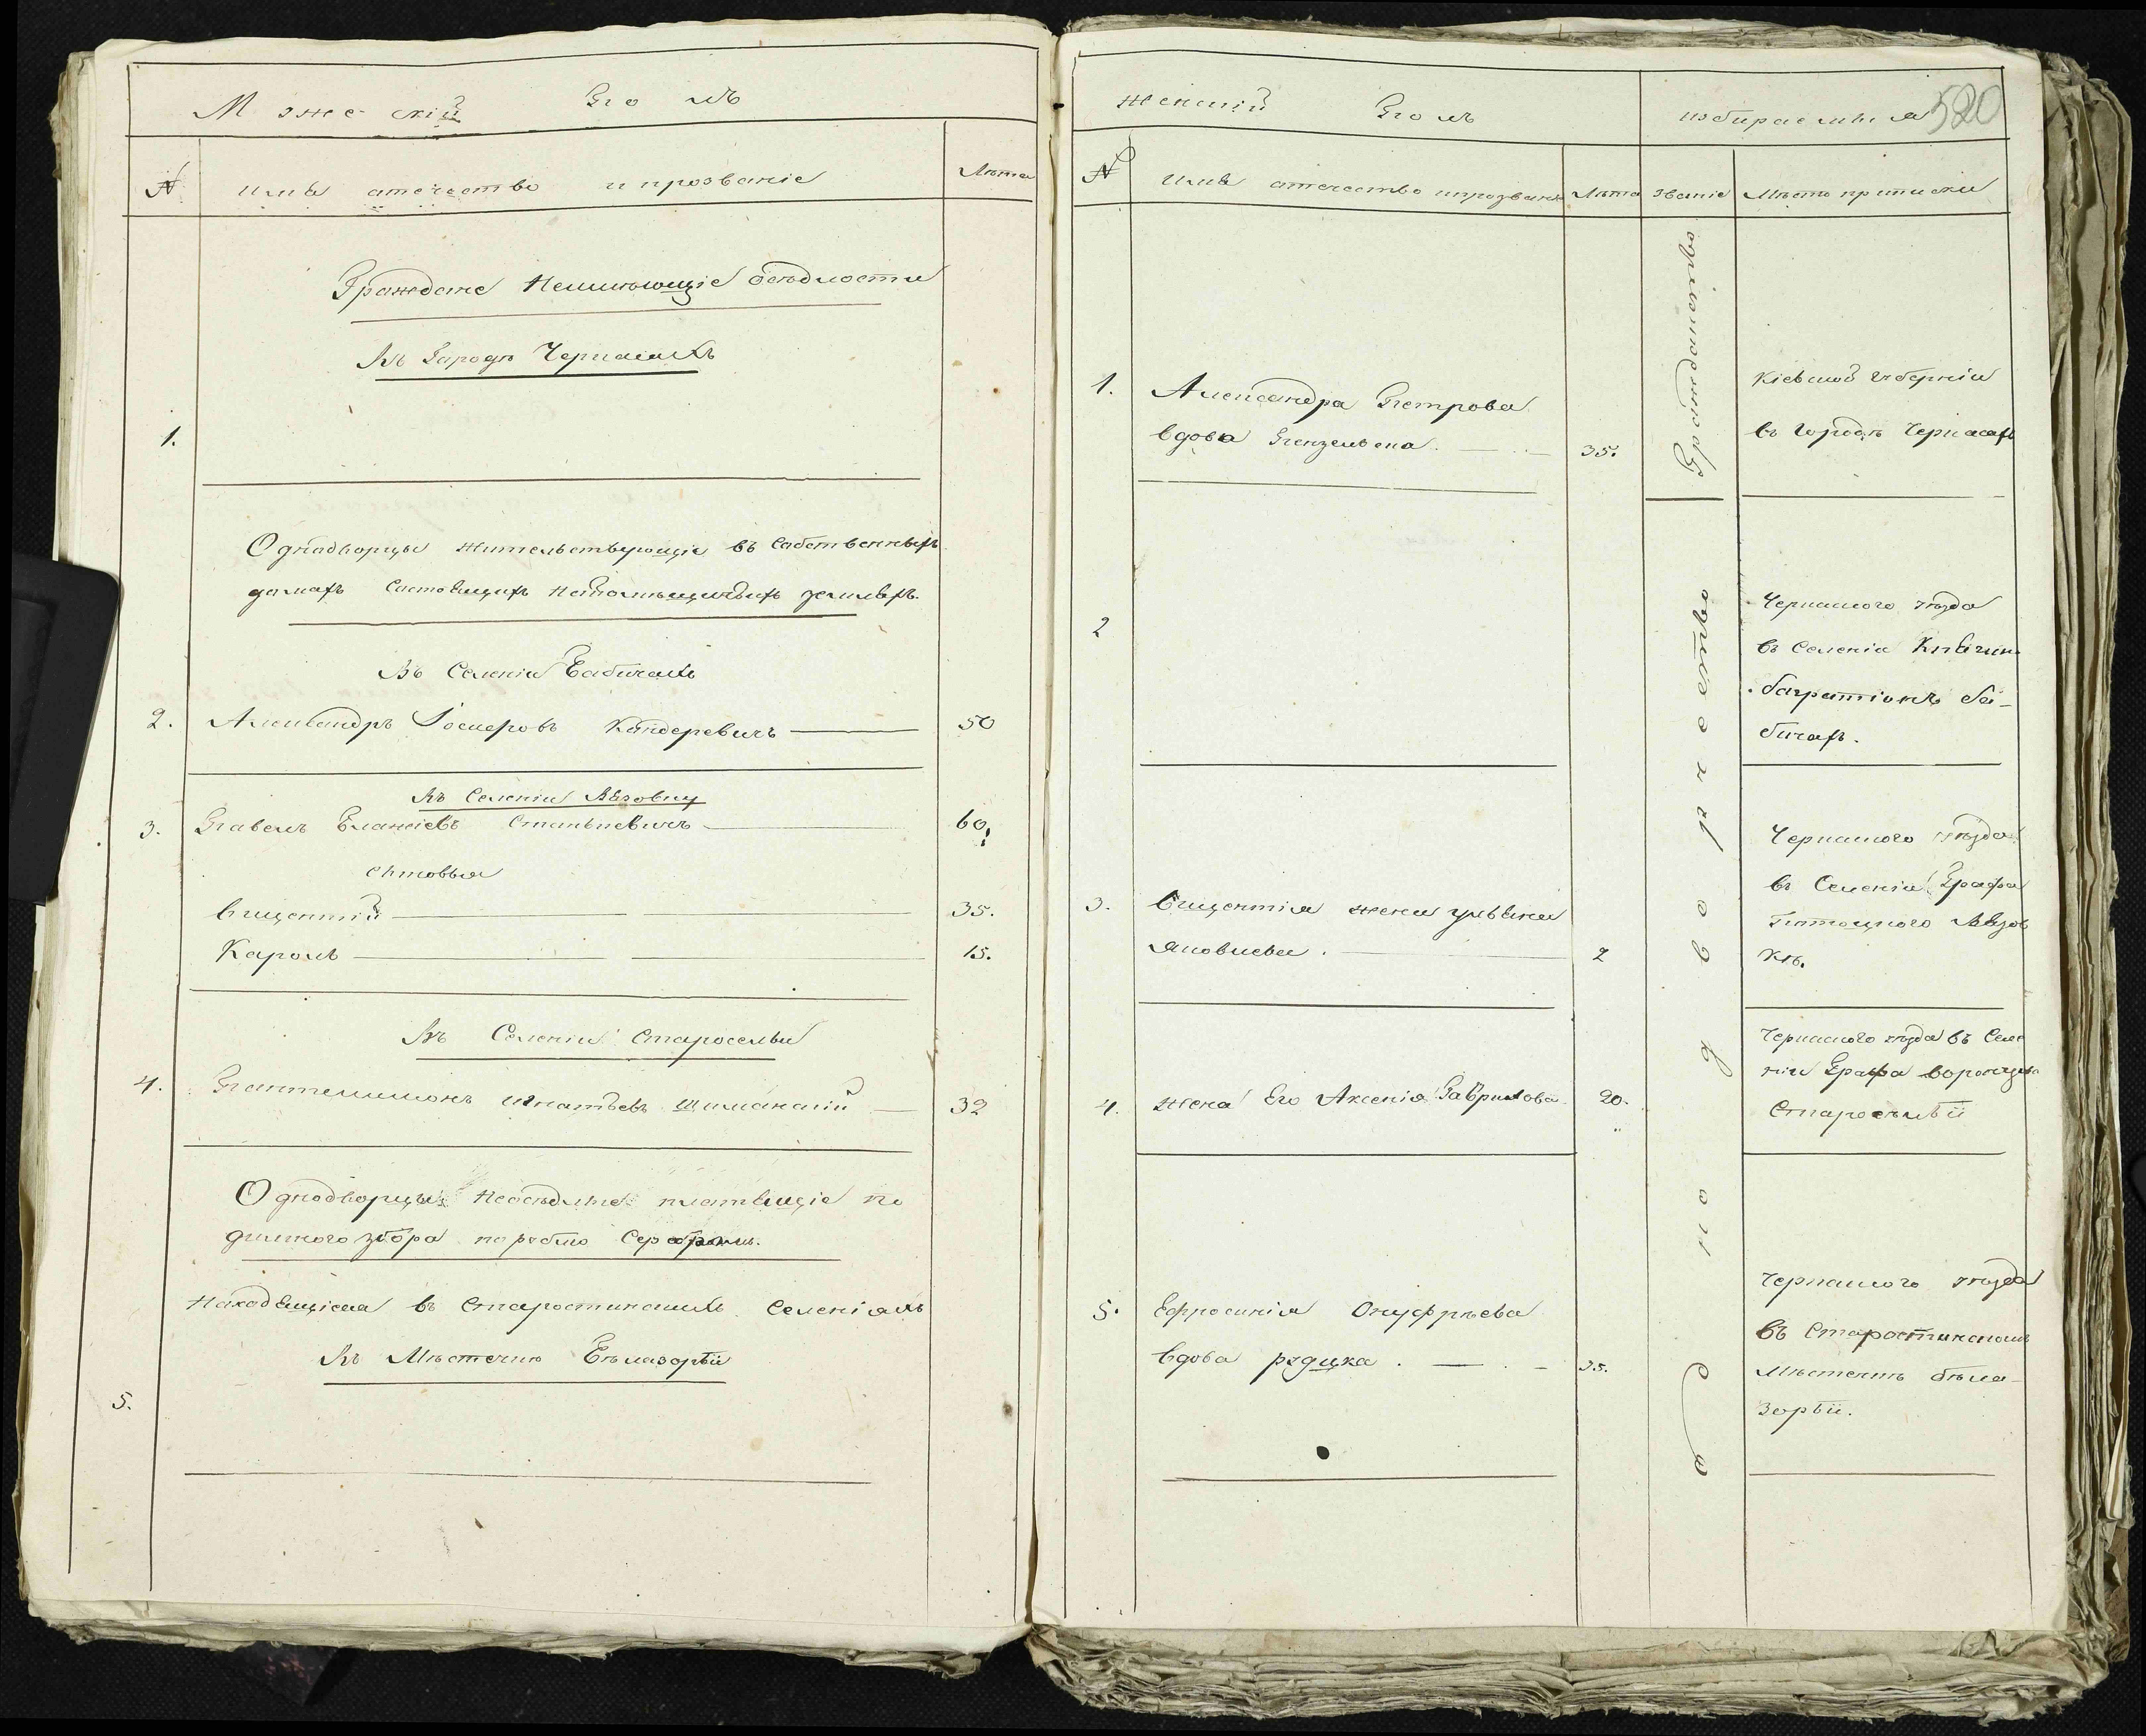 Мужескій Полъ
№ Имя отечество и прозваніе Лѣта
Граждане Неимѣющіе осѣдлости
Въ Городѣ Черкасахъ
1.
Однодворцы жительствующіе въ Собственныхъ
домахъ Састоящихъ НаПомѣщичьихъ земляхъ.
Въ Селеніи Бабичахъ
2. Александръ Каидеревичъ 50
Въ Селеніи Вязовку
3. Павелъ Станкѣевичъ 60.
сыновья
Вицентій 35.
Кароль 15.
Въ Селеніи Староселья
4. Пантелимонъ Игнатьевъ Шиманскій 32
Однодворцы Неосѣдлые платящіе по
дымного збора порублю Серебромъ.
Находящіеся въ Старостинскихъ Селеніяхъ
Въ Мѣстечкѣ Бѣлазорьи
5.
Женскій Полъ избираемыя 520
№ Имя отечество ипрозваніе Лѣта званіе Мѣсто приписки
1. Александра Петрова
вдова 35.
Гражданство
Кіевской Губерніи
въ Городѣ Черкасахъ
2
Черкаского уѣзда
въ Селеніи Княгини
багратіонъ ба-
бичахъ.
3. Вицентія жена
Яковлева. 2
Черкаского уѣзда
въ Селеніи Графа
Потоцкого Вязов
кѣ.
4. жена Его Аксенія Гаврилова 20.
Черкаского уѣзда въ Селе
ніи Графа воронцова
Староселѣи
5. Ефросинія Онуфрѣева
вдова 35.
Черкаского уѣзда
въ Старостинскомъ
Мѣстечкѣ бѣла-
зорьи.
однодворчество